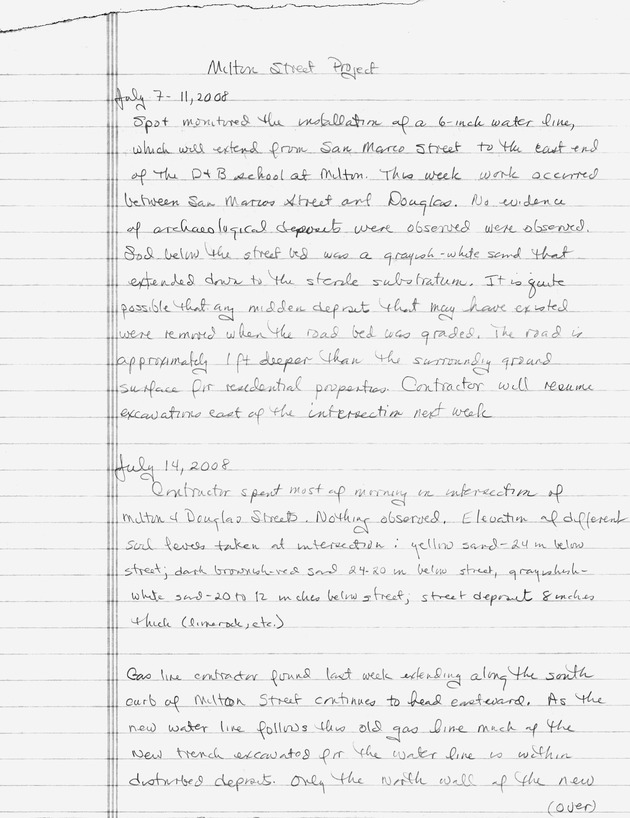 Milton Street Project
July 7-11, 2008
Spot monitored the installation of a 6-inch water line,
which will extend from San Marco Street to the east end
of the D+B school at Milton. This week work occurred
between San Marcos Street and Douglas. No evidence
of archaeological deposits were observed were observed.
Soil below the street bed was a grayish-white sand that
extended down to the sterile substratum. It is quite
possible that any midden deposit that may have existed
were removed when the road bed was graded. The road is
approximately 1 ft deeper than the surrounding ground
surface for residential properties. Contractor will resume
excavations east of the intersection next week
July 14, 2008
Contractor spent most of morning in intersection of
Milton & Douglas Streets. Nothing observed. Elevation of different
soil levels taken at intersection: yellow sand-24 in below
street; dark brownish-red sand 24-20 in below street, grayishish-
white sand-20 to 12 inches below street; street deposit 8 inches
thick (limerock, etc.)
Gas line contractor found last week extending along the south
curb of Milton Street continues to head eastward. As the
new water line follows this old gas line much of the
new trench excavated for the water line is within
disturbed deposits. Only the north wall of the new
(over)